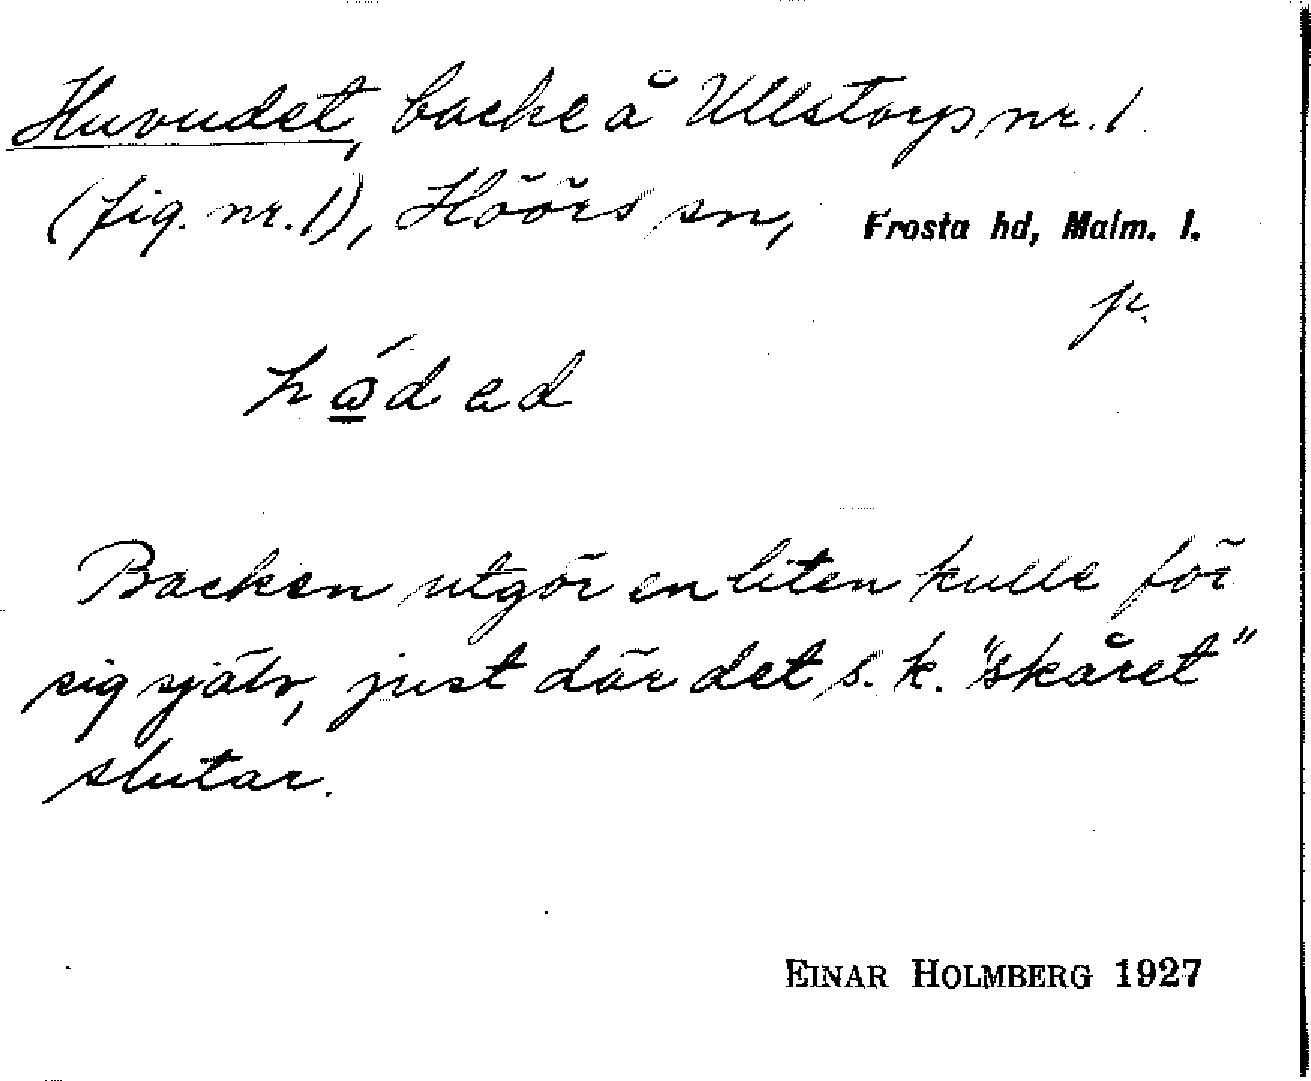 Huvudet, backe å Ullstorp nr. 1
(fig. nr. 1), Höörs sn, Frosta hd, Malm. l.
Backen utgör en liten kulle för
sig själv, just där det s. k. "skåret"
slutar.
EINAR HOLMBERG 1927